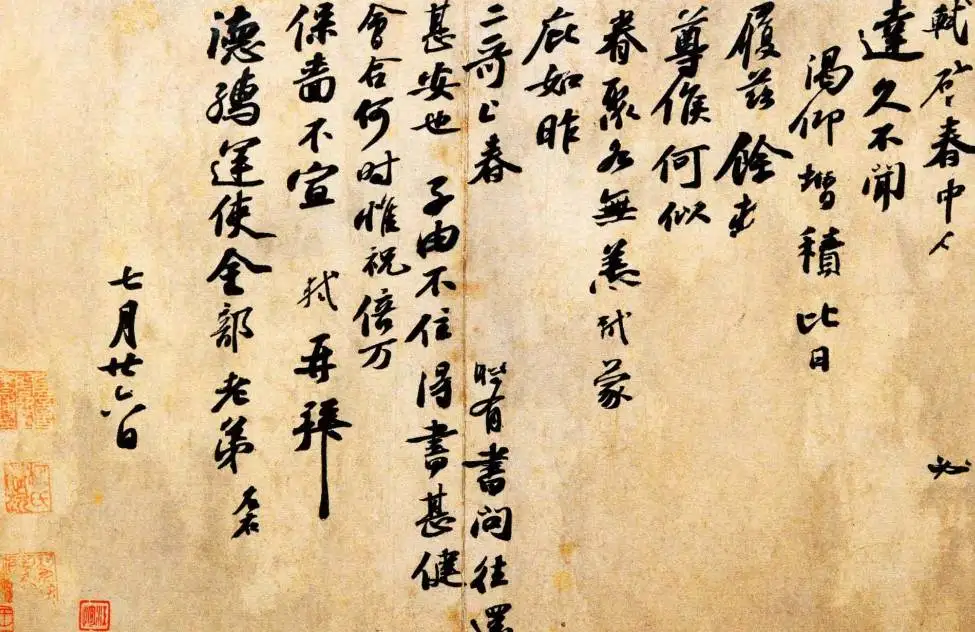 軾啓春中人 必
達久不聞
渴仰增積比日
履茲餘
尊候何似
眷聚各無恙軾蒙
庇如昨
二哥上春 有書問往還
甚安也 子由不住得書甚健
會合何时惟祝倍万
保嗇不宣 軾再拜
德孺運使金部老弟
七月廿六日